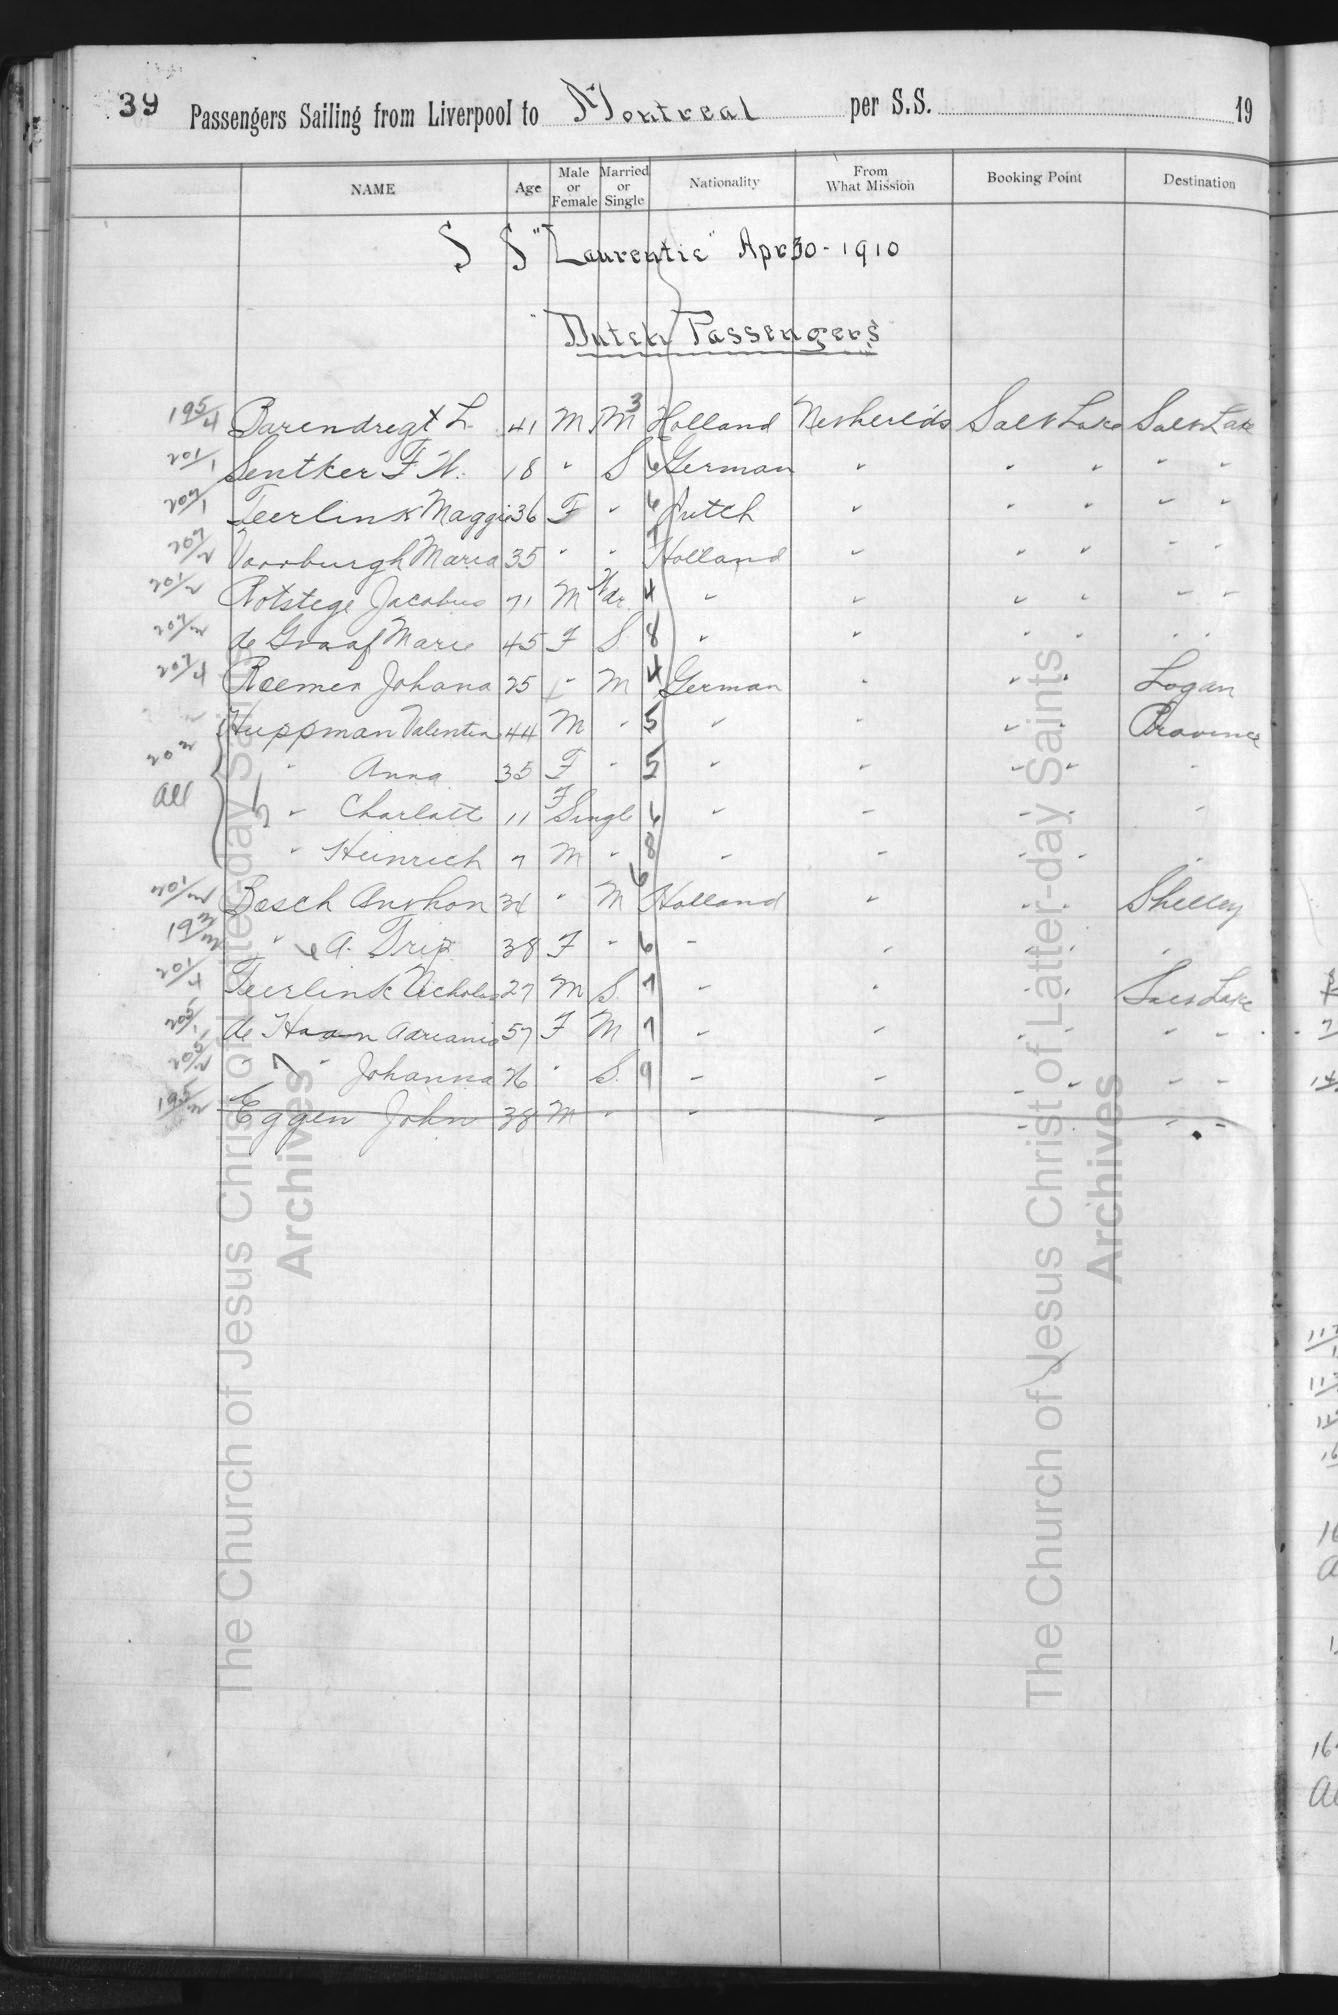 39 Passengers Sailing from Liverpool to Montreal per S.S. 19
NAME Age Male or Female Married or Single Nationality From What Mission Booking Point Destination
S S "Laurentic" Apr 30 - 1910
"Dutch Passengers
195/4 Barendregt L. 41 M M 3 Holland Netherlds Salt Lake Salt Lake
201/1 Sentker F. W. 18 " S 6 German " " " " "
203/1 Teerlink Maggie 36 F " 6 Dutch " " " " "
Voorburgh Maria 35 " " 7 Holland " " " " "
201/2 Rotstege Jacobus 71 M Wdr. 4 " " " " " "
de Graaf Marie 45 F S 8 " " " " " "
Roemer Johana 25 " M 4 German " " " Logan
Huppman Valentin 44 M " 5 " " " " Provence
203 " Anna 35 F " 5 " " " " "
All " Charlott 11 F Single 6 " " " " "
" Heinrich 7 M " 8 " " " " "
Bosch Anthon 34 " M 6 Holland " " " Shelley
193 " & A. Trip 38 F " 6 " " " " "
201/4 Teerlink Nicholas 27 M S. 7 " " " " Salt Lake
205/1 de Haan Adriania 57 F M 7 " " " " " "
205/2 " " Johanna 26 " S. 9 " " " " " "
195/2 Eggen John 38 M " " " " " "
The Church of Jesus Christ of Latter-day Saints
Archives
The Church of Jesus Christ of Latter-day Saints
Archives